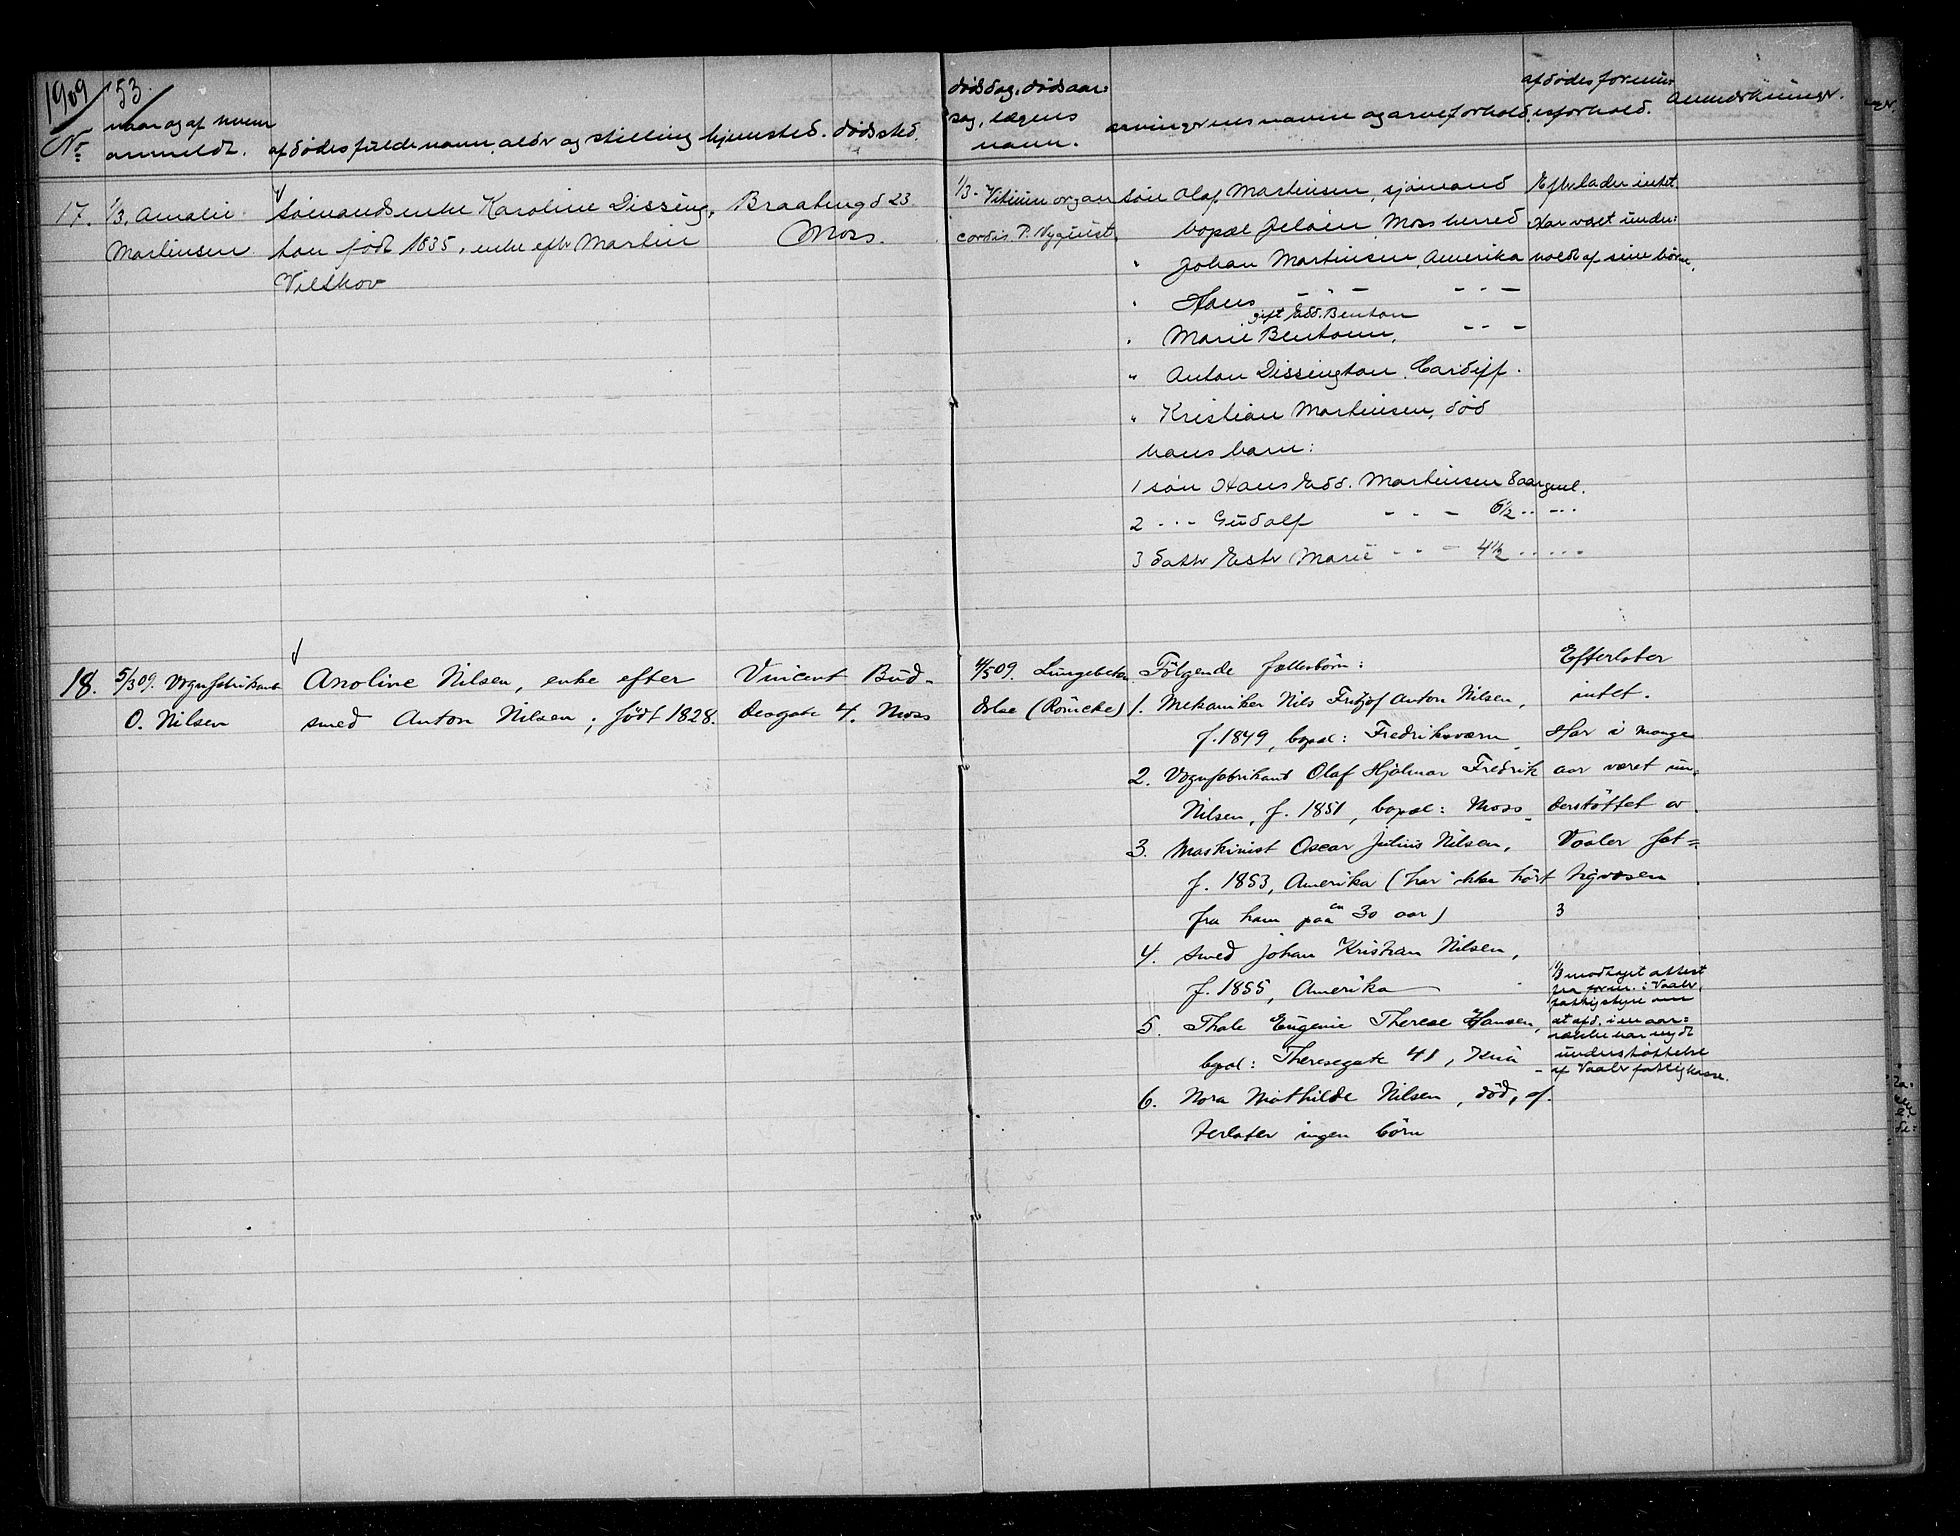 1909
53.
No
naar og af hvem
anmeldt.
afdødes fulde navn, alder og stilling
hjemsted.
dødssted.
dødsdag, dødsaar:
sag, lægens
navn.
arvingernes navn og arveforhold.
afdødes formu:
esforhold.
Anmærkninger.
17.
1/3. Amalie
Martinsen
Sømandsenke Karoline Dissing,
ton født 1835, enke efter Martin
Braatengd 23
Moss.
1/3- Vitium organ
cordis. P. Nyquist.
søn Olaf Martinsen, sjømand
bopæl Jeløen, Moss herred
" Johan Martinsen, Amerika
" Hans - - - - - -
gift Edd. Benton
" Marie Bentonn, - - -
" Anton Dissington, Cardiff.
" Kristian Martinsen, død
hans barn:
1 søn Hans Edd. Martinsen 8 aar gml.
2 - - - Gudolf - - - 6½ - - - -
3 datter Ester Marie - - - 4½ - - - - -
Efterlader intet
Har vært under:
holdt af sine børn.
18.
5/3 09. Vognfabrikant
O. Nilsen
Anoline Nilsen, enke efter
smed Anton Nilsen; født 1828.
Vincent Bud-
desgate 4. Moss
4/3 09. Lungebeten
delse (Röncke)
Følgende fællesbørn:
1. Mekaniker Nils Fritjof Anton Nilsen,
f. 1849, bopæl: Fredriksværn
2. Vognfabrikant Olaf Hjalmar Fredrik
Nilsen, f. 1851, bopæl: Moss
3. Maskinist Oscar Julius Nilsen,
f. 1853, Amerika (har ikke hört
fra ham paa en 30 aar)
4. Smed Johan Kristian Nilsen,
f. 1855, Amerika
5. Thale Eugenie Therese Hansen,
bopæl: Theresegate 41, Kria
6. Nora Mathilde Nilsen, död, ef-
terlater ingen börn
Efterlater
intet.
Har i mange
aar været un-
derstöttet av
Vaaler fat=
tigvæsen
3
modtaget attest
fra form. i Vaaler
fattigstyre om
at afd. i en aar:
række har nydt
understøttelse
af Vaaler fattigkasse.